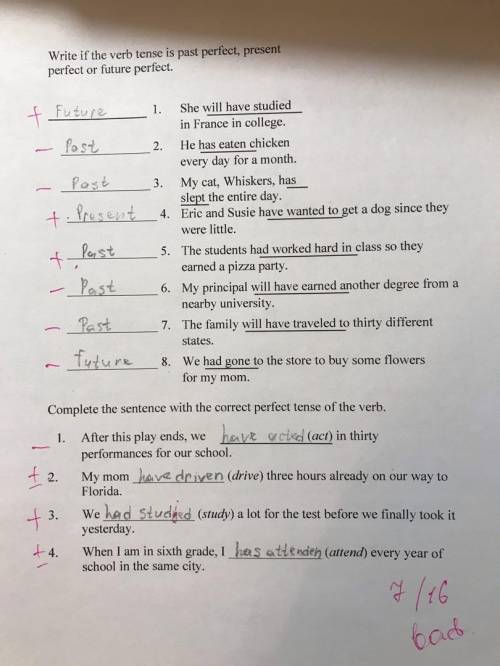 Write if the verb tense is past perfect, present
perfect or future perfect.
+ Future 1. She will have studied
in France in college.
– Past 2. He has eaten chicken
every day for a month.
– Past 3. My cat, Whiskers, has
slept the entire day.
+ Present 4. Eric and Susie have wanted to get a dog since they
were little.
+ Past 5. The students had worked hard in class so they
earned a pizza party.
– Past 6. My principal will have earned another degree from a
nearby university.
– Past 7. The family will have traveled to thirty different
states.
– future 8. We had gone to the store to buy some flowers
for my mom.
Complete the sentence with the correct perfect tense of the verb.
– 1. After this play ends, we have acted (act) in thirty
performances for our school.
± 2. My mom have driven (drive) three hours already on our way to
Florida.
+ 3. We had studied (study) a lot for the test before we finally took it
yesterday.
± 4. When I am in sixth grade, I has attended (attend) every year of
school in the same city.
7/16
bad